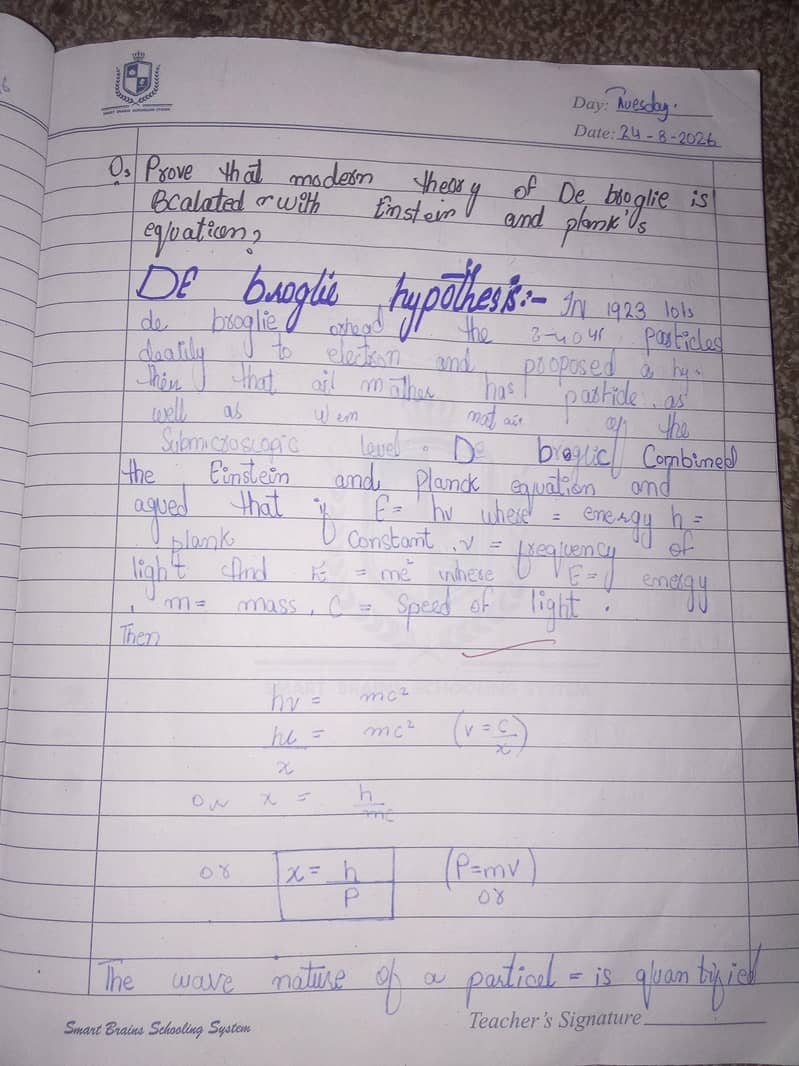 SMART BRAINS SCHOOLING SYSTEM
Day: Tuesday.
Date: 24-8-2026
Q: Prove that modern theory of De broglie is
with Einstein and plank's
equation?
DE broglie hypothesis:- In 1923 lois
de broglie the particles
to electron and proposed a hy-
that all has particle as
well as of the
Submicroscopic level. De broglie Combined
the Einstein and Planck equation and
agued that if E = hv where = energy h =
plank Constant, v = frequency of
light And E = mc² where E = energy
, m = mass, C = Speed of light.
Then
hv = mc²
hc/x = mc² (v = c/x)
or x = h/mc
or x = h/P (P=mv)
or
The wave nature of a particel = is quantified
Smart Brains Schooling System
Teacher's Signature